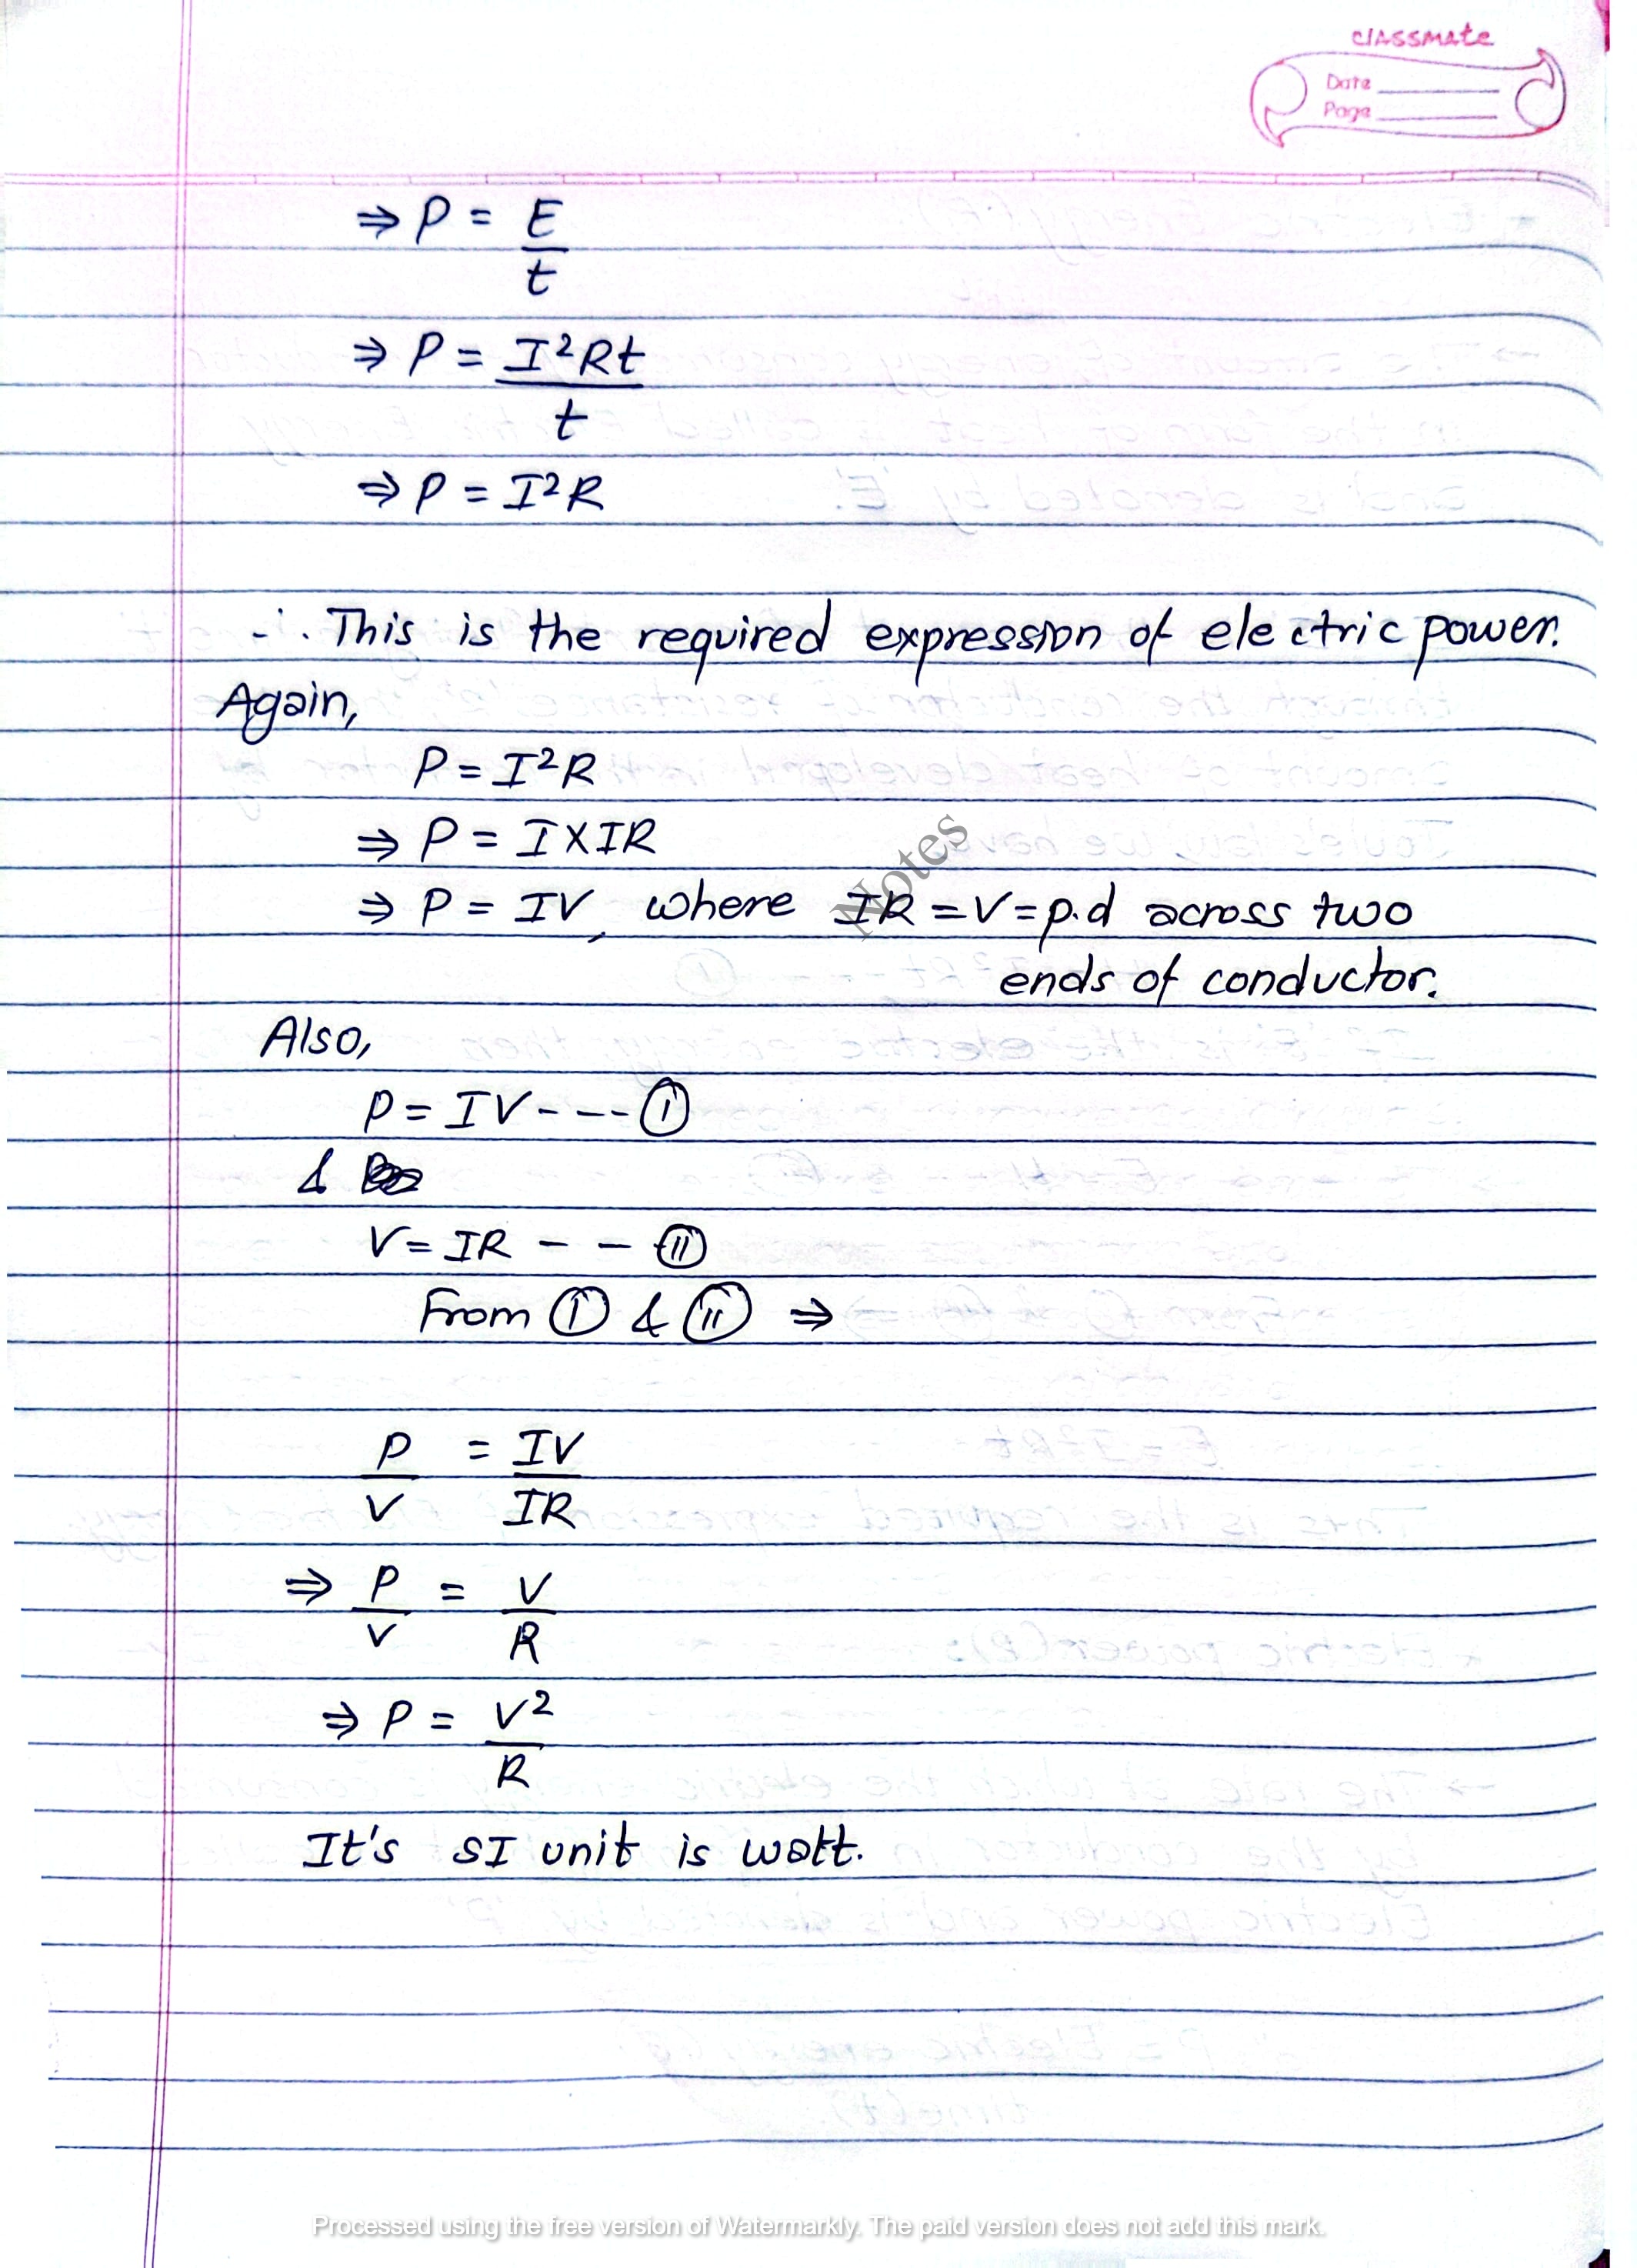 classmate
Date
Page
⇒ P = E
t
⇒ P = I²Rt
t
⇒ P = I²R
∴ This is the required expression of electric power.
Again,
P = I²R
⇒ P = I X IR
⇒ P = IV, where IR = V = p.d across two
ends of conductor.
Notes
Also,
P = IV - - - - (I)
&
V = IR - - (II)
From (I) & (II) ⇒
P = IV
V IR
⇒ P = V
V R
⇒ P = V²
R
It's SI unit is watt.
Processed using the free version of Watermarkly. The paid version does not add this mark.